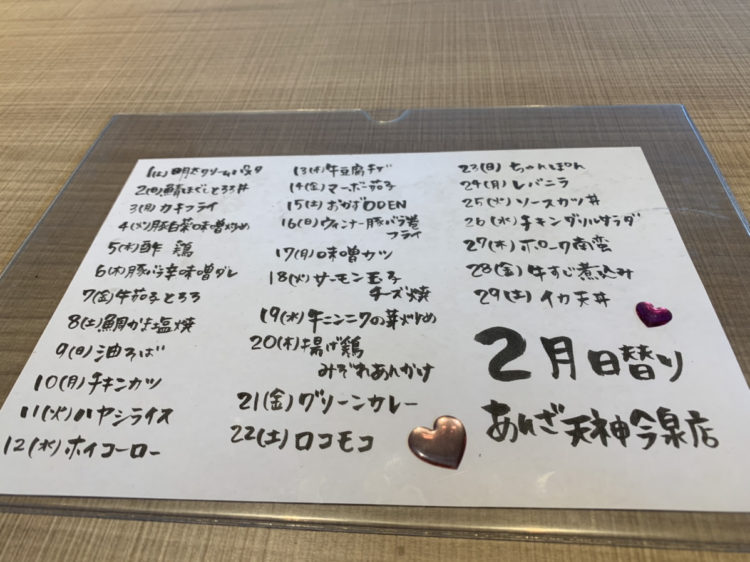 1(土)明太クリームパスタ
2(日)鯖ほぐしとろろ丼
3(月)カキフライ
4(火)豚白菜味噌炒め
5(水)酢鶏
6(木)豚バラ辛味噌ダレ
7(金)牛茄子とろろ
8(土)鯛かま塩焼
9(日)油そば
10(月)チキンカツ
11(火)ハヤシライス
12(水)ホイコーロー
13(木)牛豆腐チゲ
14(金)マーボー茄子
15(土)おかずOPEN
16(日)ウィンナー豚バラ巻
フライ
17(月)味噌カツ
18(火)サーモン玉子
チーズ焼
19(水)牛ニンニクの芽炒め
20(木)揚げ鶏
みぞれあんかけ
21(金)グリーンカレー
22(土)ロコモコ
23(日)ちゃんぽん
24(月)レバニラ
25(火)ソースカツ丼
26(水)チキングリルサラダ
27(木)ポーク南蛮
28(金)牛すじ煮込み
29(土)イカ天丼
2月日替り
あんざ天神今泉店